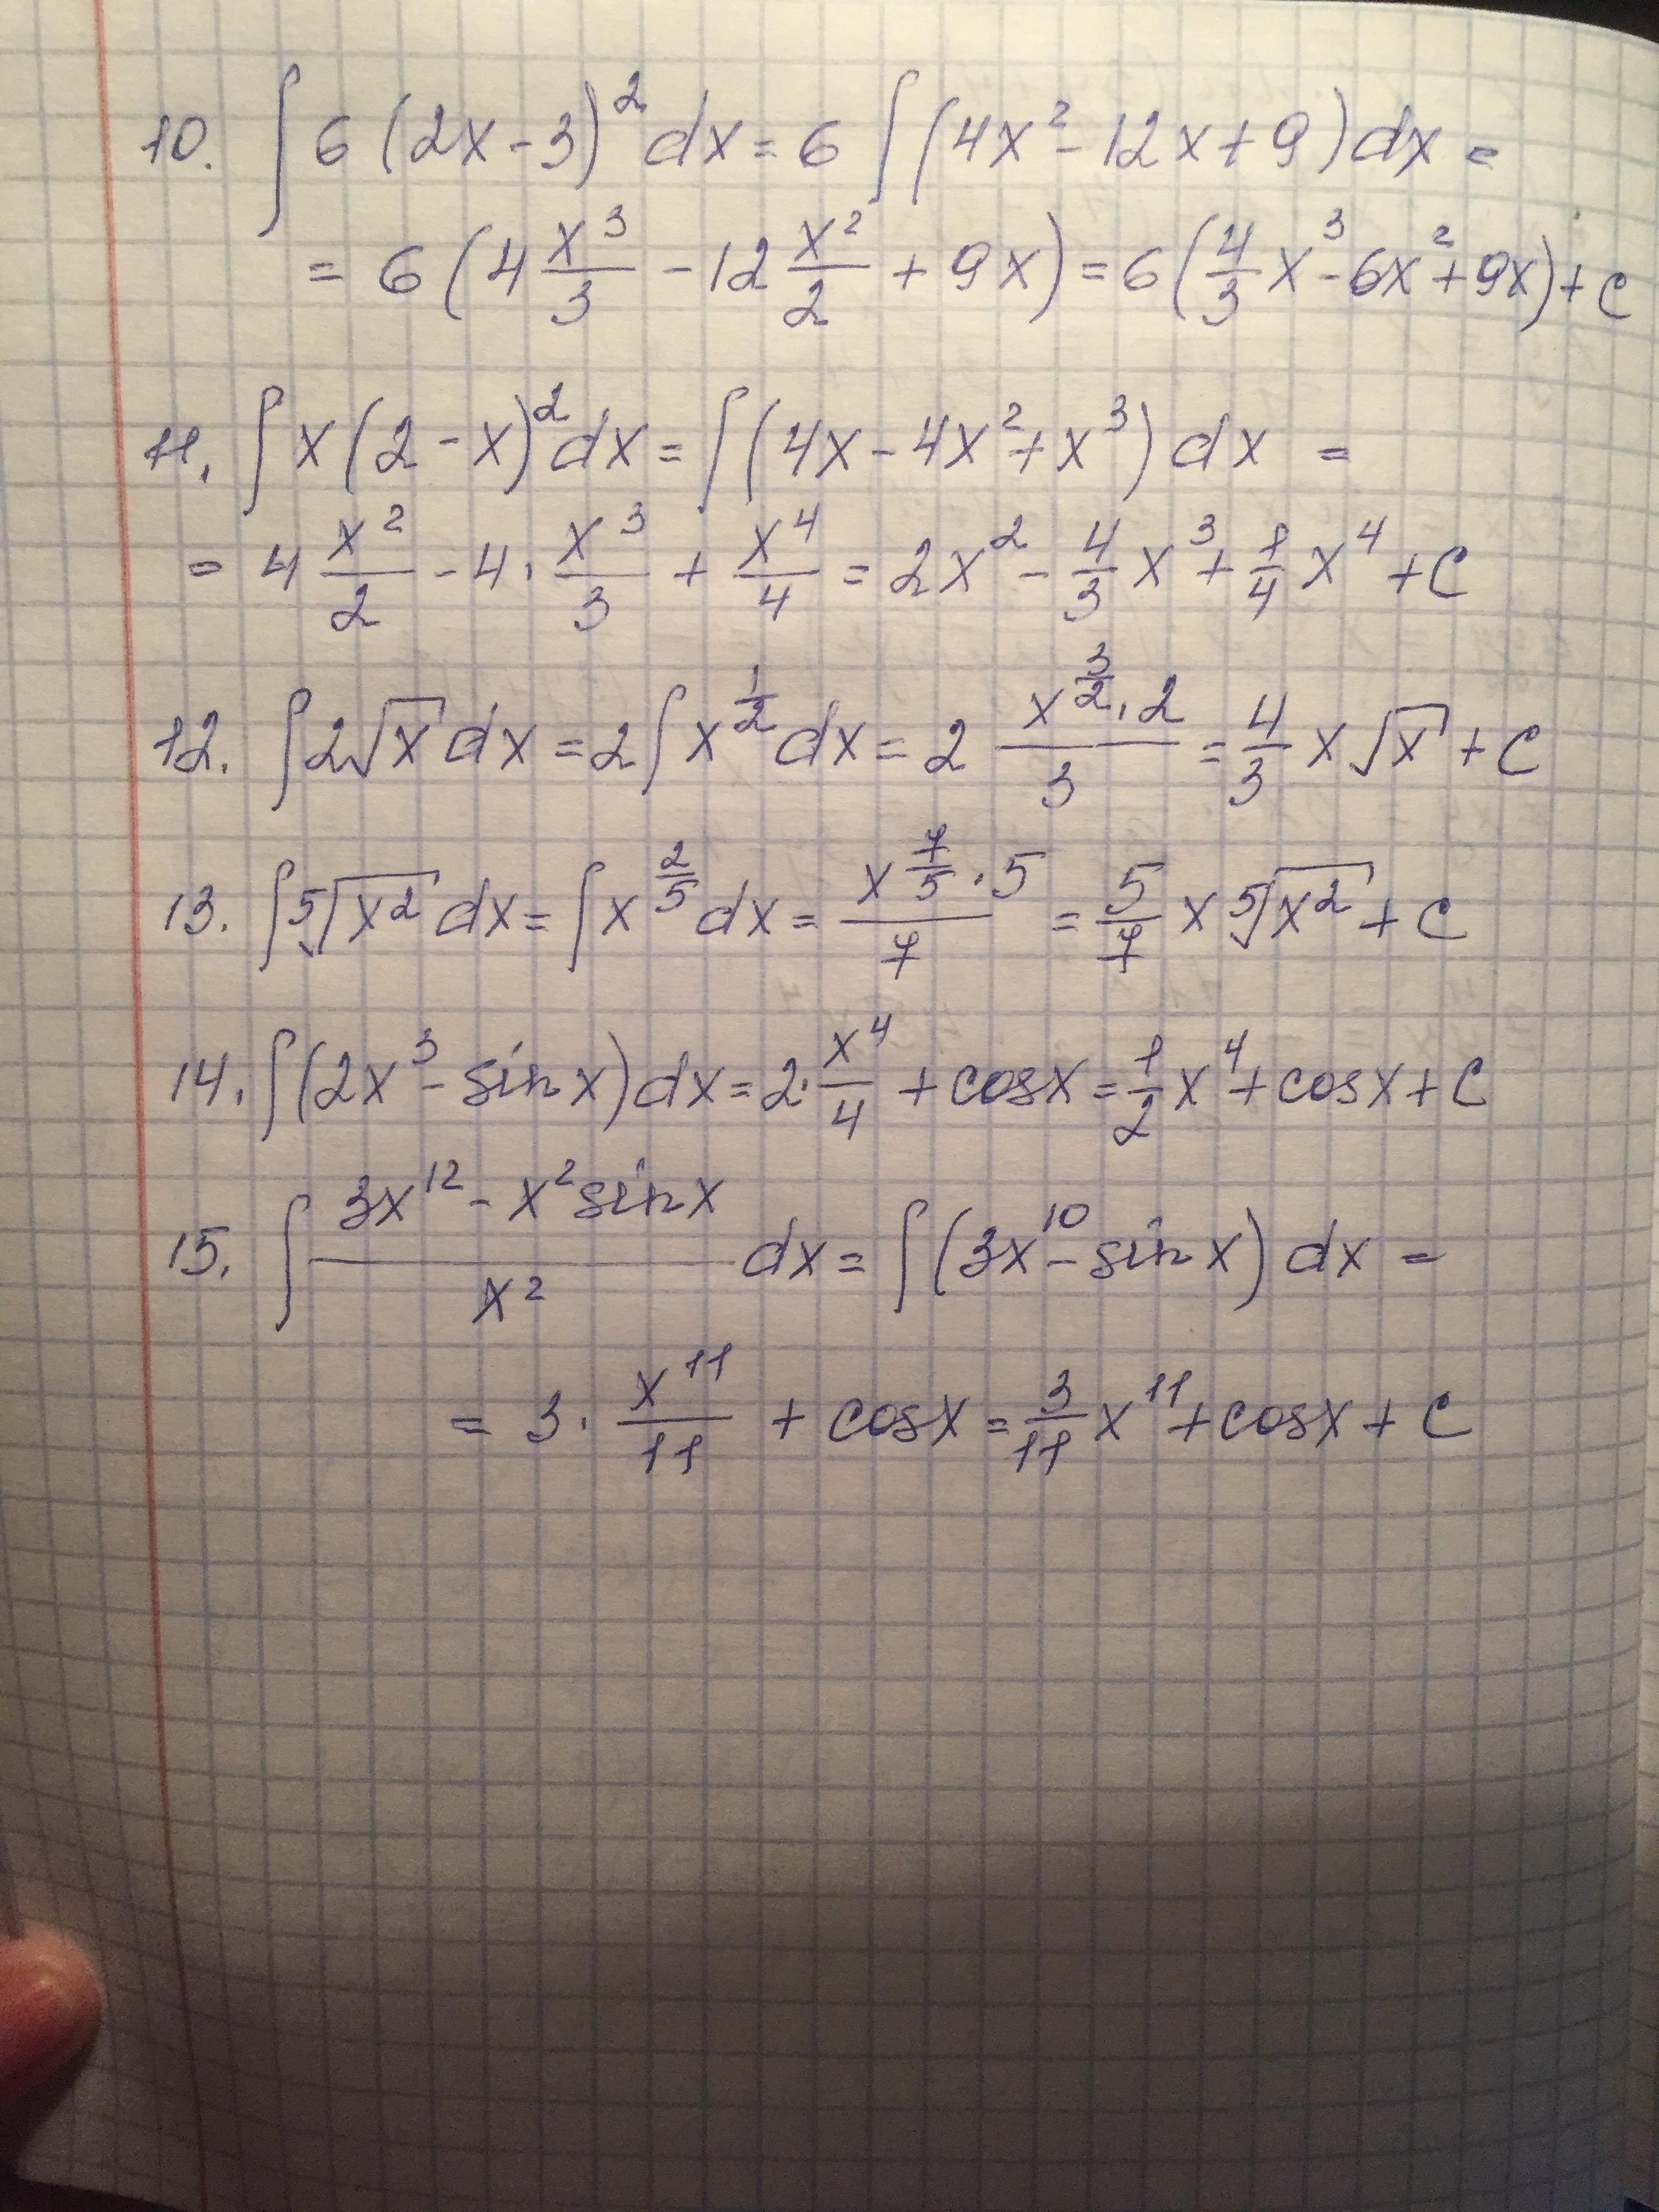 10. ∫ 6 (2x - 3)² dx = 6 ∫ (4x² - 12x + 9) dx =
= 6 (4 x³/3 - 12 x²/2 + 9x) = 6 (4/3 x³ - 6x² + 9x) + C
11. ∫ x (2 - x)² dx = ∫ (4x - 4x² + x³) dx =
= 4 x²/2 - 4 · x³/3 + x⁴/4 = 2x² - 4/3 x³ + 1/4 x⁴ + C
12. ∫ 2√x dx = 2 ∫ x^(1/2) dx = 2 (x^(3/2) · 2)/3 = 4/3 x √x + C
13. ∫ ⁵√(x²) dx = ∫ x^(2/5) dx = (x^(7/5) · 5)/7 = 5/7 x ⁵√(x²) + C
14. ∫ (2x³ - sin x) dx = 2 · x⁴/4 + cos x = 1/2 x⁴ + cos x + C
15. ∫ (3x¹² - x² sin x)/x² dx = ∫ (3x¹⁰ - sin x) dx =
= 3 · x¹¹/11 + cos x = 3/11 x¹¹ + cos x + C